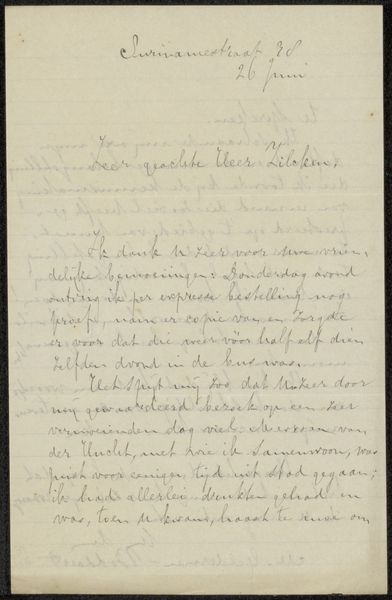 Surinamestraat 38
26 Juni
Zeer geachte Heer Zilcken,
Ik dank U zeer voor uwe vrien-
delijke bemoeiingen: Donderdag avond
ontving ik per expresse bestelling nog
proef, nam er copie van en zorgde
er voor dat die, weer vóór half elf dien
zelfden avond in de bus was.
Het spijt mij zoo, dat Uw zeer door
mij gewaardeerd bezoek op een zeer
dag viel. Mevrouw van
der Vlucht, met wie ik samenwoon, was
juist voor eenigen tijd uit stad gegaan;
ik had allerlei drukten gehad en
was, toen U kwam, om